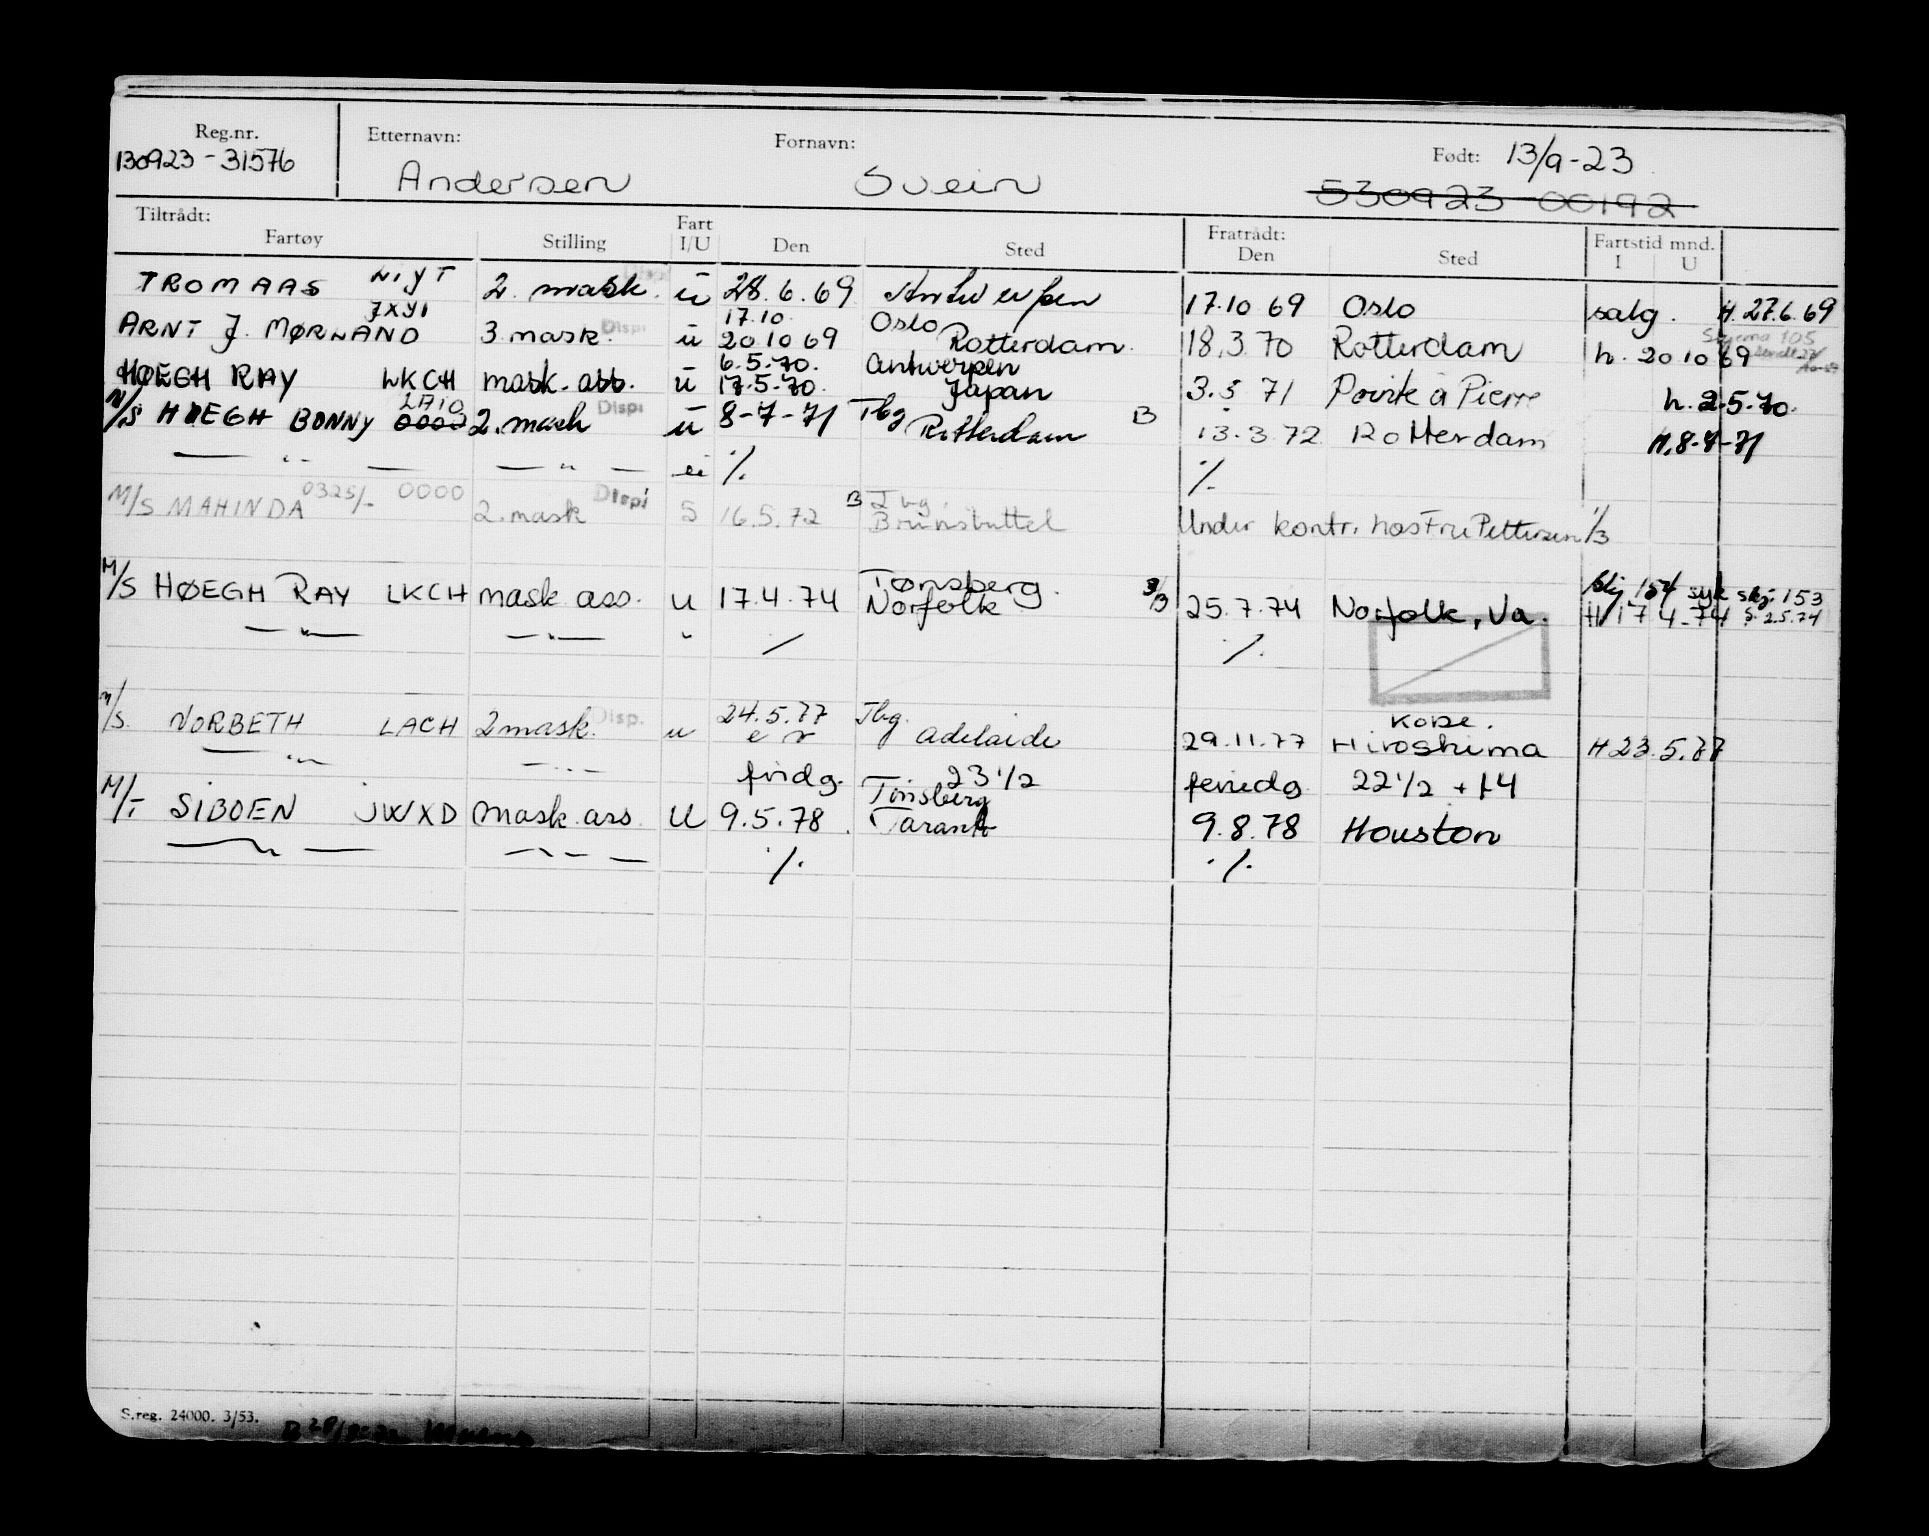 Reg.nr. Etternavn: Fornavn: Født: 13/9-23
130923-31576 Andersen Svein 530923 00192
Tiltrådt: Fart Fratrådt: Fartstid mnd.
Fartøy Stilling I/U Den Sted Den Sted I U
TROMAAS 2. mask. u 28.6.69 Antwerpen 17.10 69 Oslo salg. H. 27.6.69
JXYI 17.10. Oslo
ARNT J. MØRLAND 3 mask. Dispi u 20 10 69 Rotterdam. 18.3.70 Rotterdam h. 20 10 69 105
6.5.70. Antwerpen
HØEGH RAY LKCH mask. ass. u 17.5.70. Japan 3.5 71 Pointe à Pierre h. 2.5.70.
M/S HØEGH BONNY 0000 2. mask Dispi u 8-7-71 Tbg Rotterdam B 13.3.72 Rotterdam H. 8-7-71
— " — — " — ei ./. ./.
M/S MAHINDA 0325/- 0000 2. mask Dispi S 16.5.72 B Tbg. Brunsbuttel Under kontr. hos Fru Pettersen 1/3
Tønsberg.
M/S HØEGH RAY LKCH mask ass. u 17.4.74 Norfolk 25.7.74 Norfolk, Va. H 17 4-74 skj 154 syk skj. 153
2.5.74
— " — — " — " / ./.
M/S. NORBETH LACH 2 mask. Disp. u 24.5.77 Tbg. Adelaide 29.11.77 Kobe. Hiroshima H 23.5.77
— " — — " — fridg. 23 1/2 feriedg 22 1/2 + 14
M/- SIBOEN JWXD mask. ass U 9.5.78. Tønsberg Taranto 9.8.78 Houston
— " — — " — ./. ./.
S.reg. 24000. 3/53.